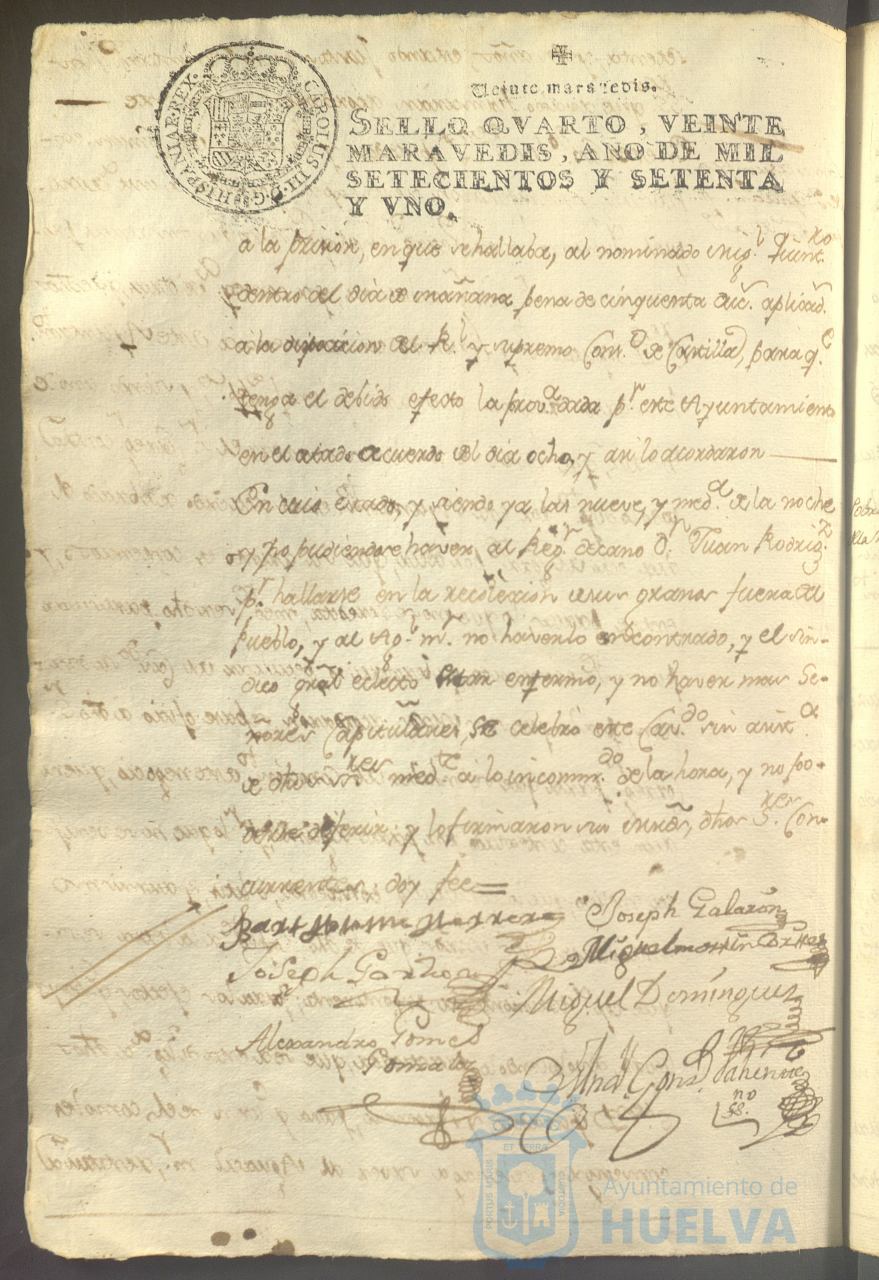 CAROLUS III D G HISPANIAR REX
Veinte maravedis.
SELLO QVARTO, VEINTE
MARAVEDIS, AÑO DE MIL
SETECIENTOS Y SETENTA
Y VNO.
a la prision, en que se hallaba, al nominado Mig.l Quint.ro
dentro del dia de mañana pena de cinquenta duc. aplicad.
a la disposicion del R.l y supremo Cons.o de Castilla, para q.e
tenga el debido efecto la prov.a dada p.r este Ayuntamiento
en el citado acuerdo del dia ocho, y asi lo acordaron
En cuio estado, y siendo ya las nueve, y med.a de la noche
y no pudiendose haver al Reg.r decano D.n Juan Rodrig.z
p.r hallarse en la recoleccion de sus granos fuera del
Pueblo, y al Ag.l m.r no haverlo encontrado, y el sin-
dico gral electo estar enfermo, y no haver mas Se-
nores Capitulares, se celebró este Cav.do sin asist.a
de dhos s.res med.te a lo incomm.do de la hora, y no poo-
derse deferir, y lo firmaron sus mrds, dhos S.res Con-
currentes doy fee=
Bartholome Herrera Joseph Galazón
Miguel martin
Joseph Garzia
Miguel Domínguez
Alexandro Gomez
Gonzalez
Cons.l
ss.no
PORTUS MARIS ET TERRAE CUSTODIA
Ayuntamiento de
HUELVA